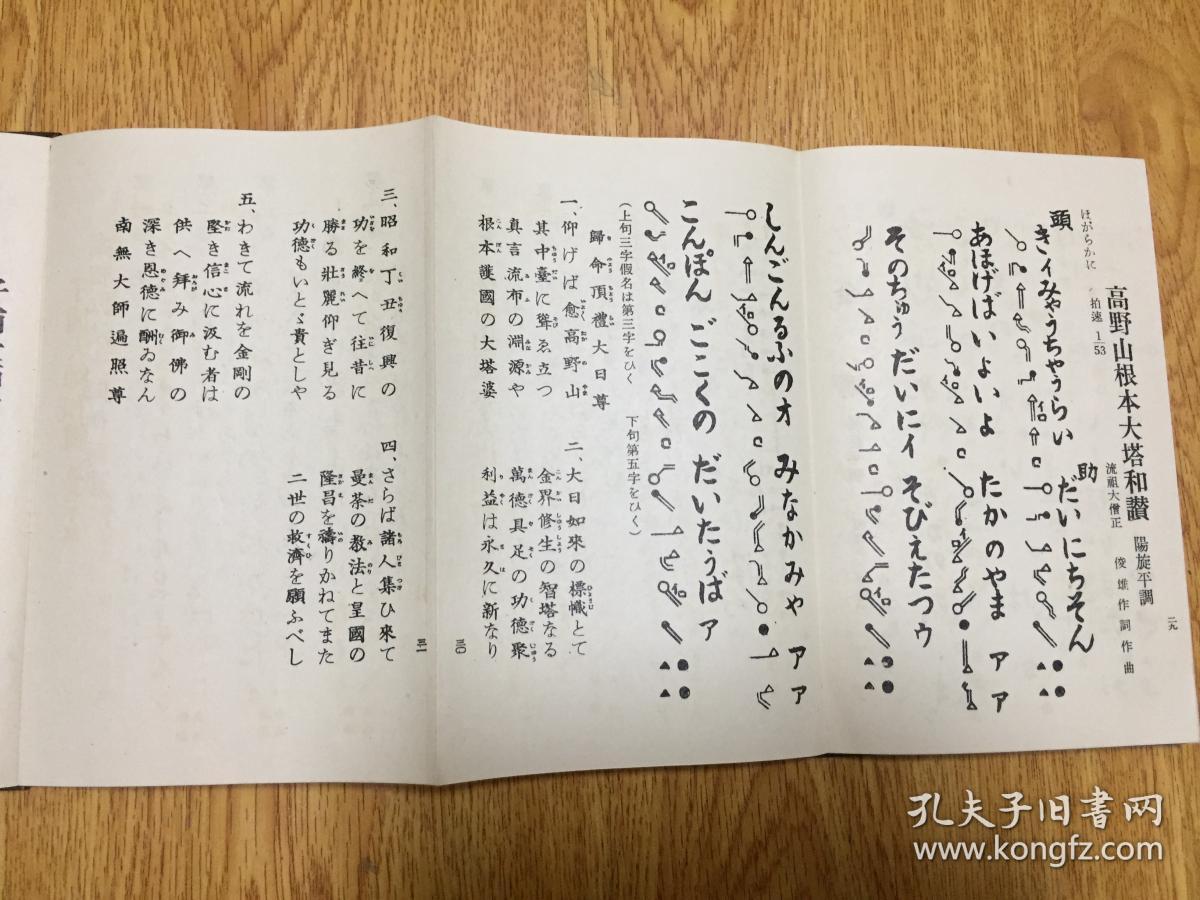 高野山根本大塔和讃 陽旋平調
ほがらかに 拍速 1/53 流祖大僧正 俊雄作詞作曲
二九
頭 きイみやうちやうらい 助 だいにちそん
あほげばいよいよ たかのやま アア
そのちゆうだいにイ そびえたつウ
しんごんるふのオ みなかみや アア
こんぽんごこくの だいたうばア
(上句三字假名は第三字をひく 下句第五字をひく)
歸命頂禮大日尊
一、仰げば愈高野山
其中臺に聳ゑ立つ
真言流布の淵源や
根本護國の大塔婆
二、大日如來の標幟とて
金界修生の智塔なる
萬德具足の功德聚
利益は永久に新なり
三〇
三一
三、昭和丁丑復興の
功を終へて往昔に
勝る壯麗仰ぎ見る
功德もいとゞ貴としや
四、さらば諸人集ひ來て
曼荼の教法と皇國の
隆昌を禱りかねてまた
二世の救濟を願ふべし
五、わきて流れを金剛の
堅き信心に汲む者は
供へ拜み御佛の
深き恩德に酬ゐなん
南無大師遍照尊
孔夫子旧书网
www.kongfz.com